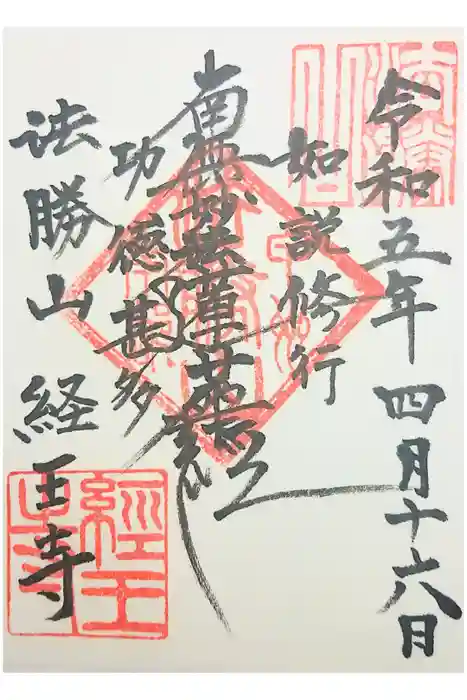 令和五年四月十六日
如説修行
南無妙法蓮華経
功徳甚多
法勝山経王寺
法勝山
経王寺